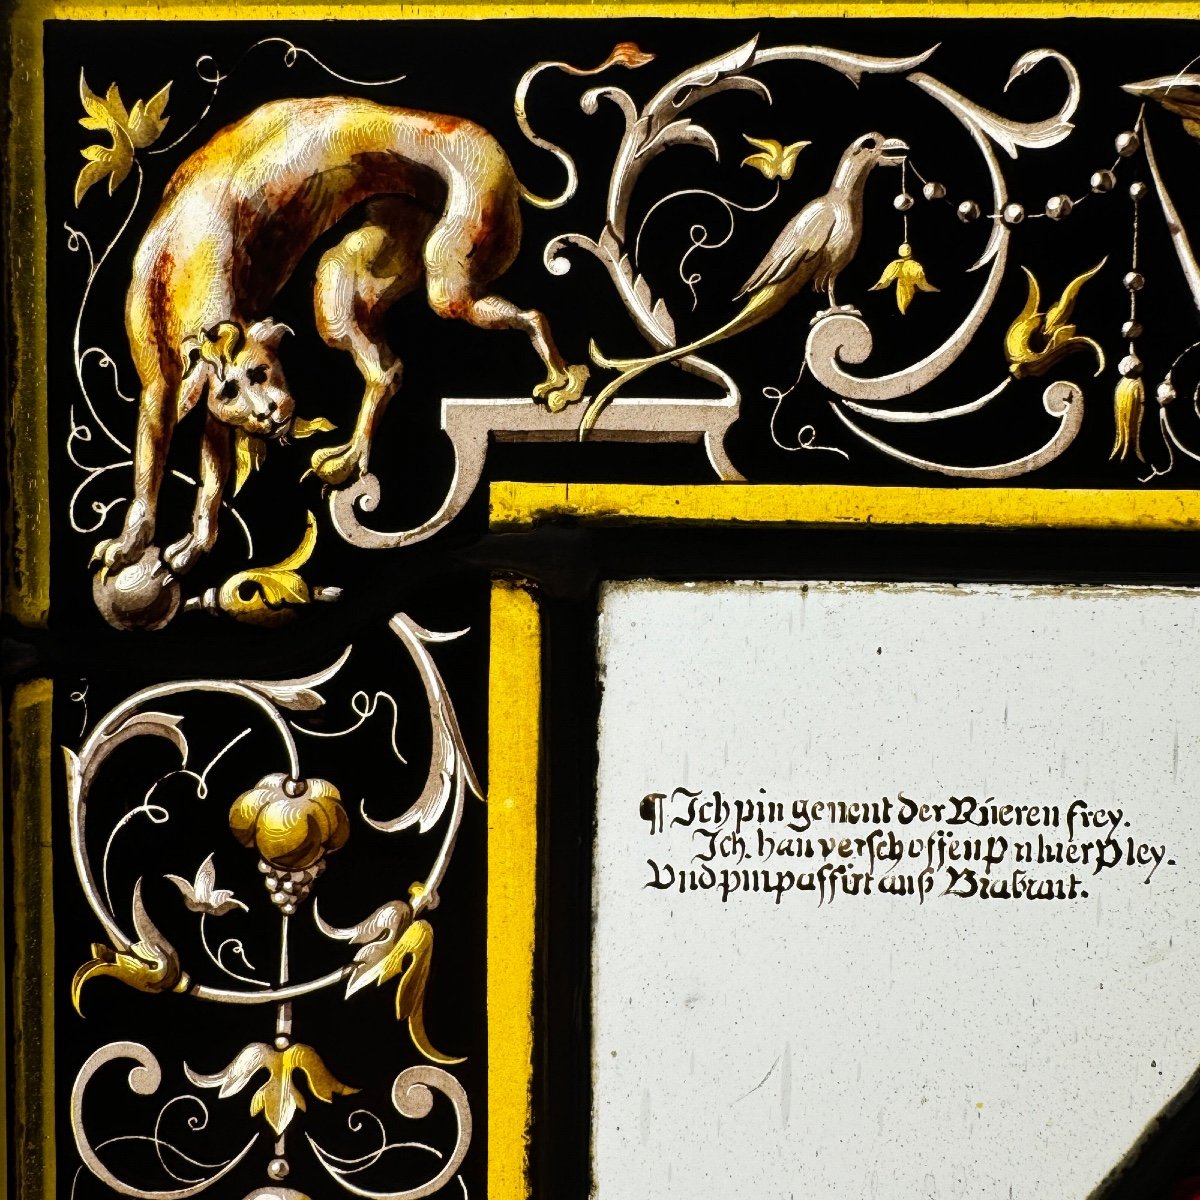 ¶ Ich pin genent der Rúeren frey.
Ich. han verschossen P n hier P ley.
Vnd pin passirt auß Brabant.